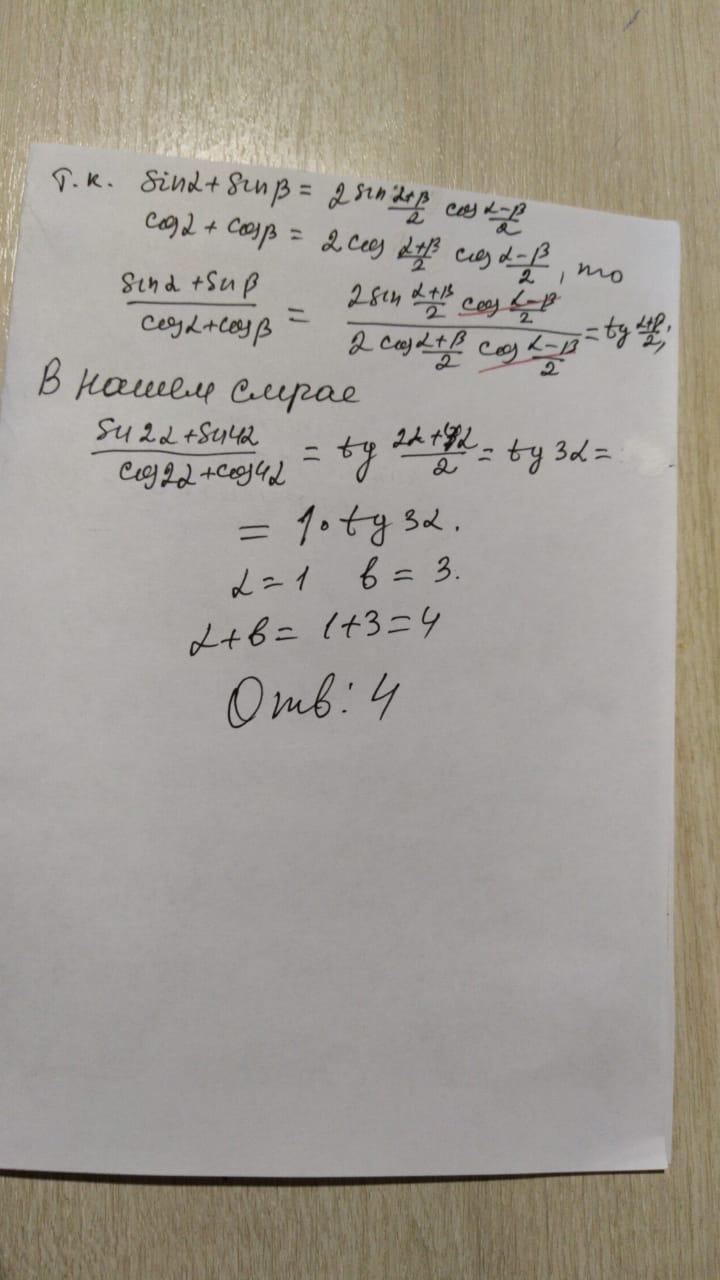 т.к. sinα + sinβ = 2 sin (α+β)/2 cos (α-β)/2
cosα + cosβ = 2 cos (α+β)/2 cos (α-β)/2, то
(sinα + sinβ)/(cosα + cosβ) = (2 sin (α+β)/2 cos (α-β)/2)/(2 cos (α+β)/2 cos (α-β)/2) = tg (α+β)/2;
В нашем случае
(sin 2α + sin 4α)/(cos 2α + cos 4α) = tg (2α + 4α)/2 = tg 3α =
= 1 · tg 3α.
α = 1 в = 3.
α + в = 1 + 3 = 4
Отв: 4